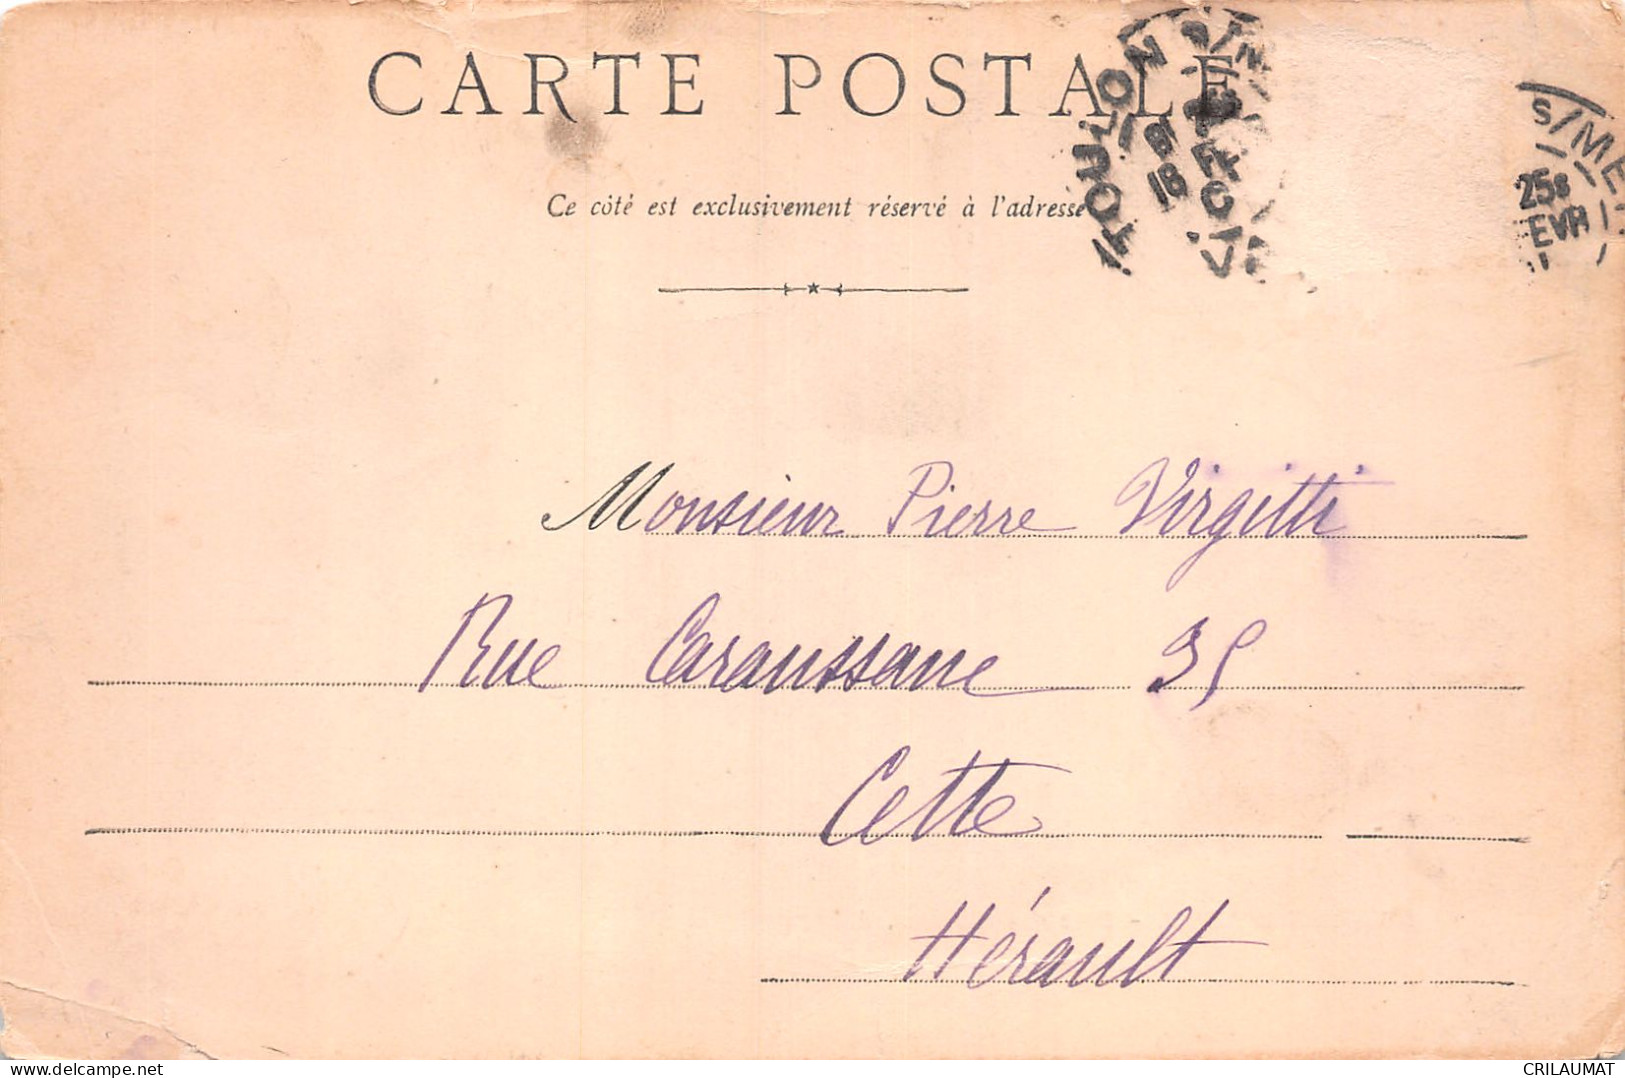 CARTE POSTALE
TOULON S/M
18
S/ME
25
EVR
Ce côté est exclusivement réservé à l'adresse
Monsieur Pierre Virgitti
Rue Caraussane 35
Cette
Hérault
www.delcampe.net
CRILAUMAT